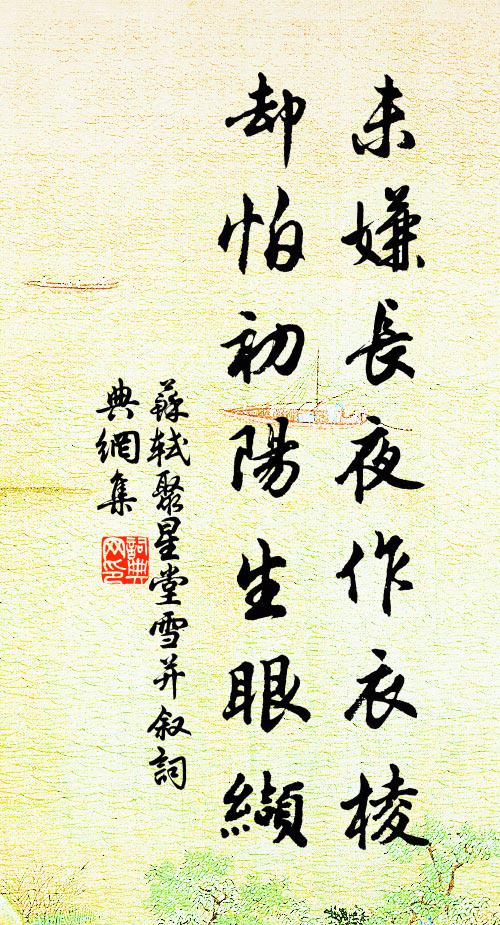 未嫌長夜作衣棱
却怕初陽生眼纈
蘇軾聚星堂雪并叙詞
典網集
詞典網印